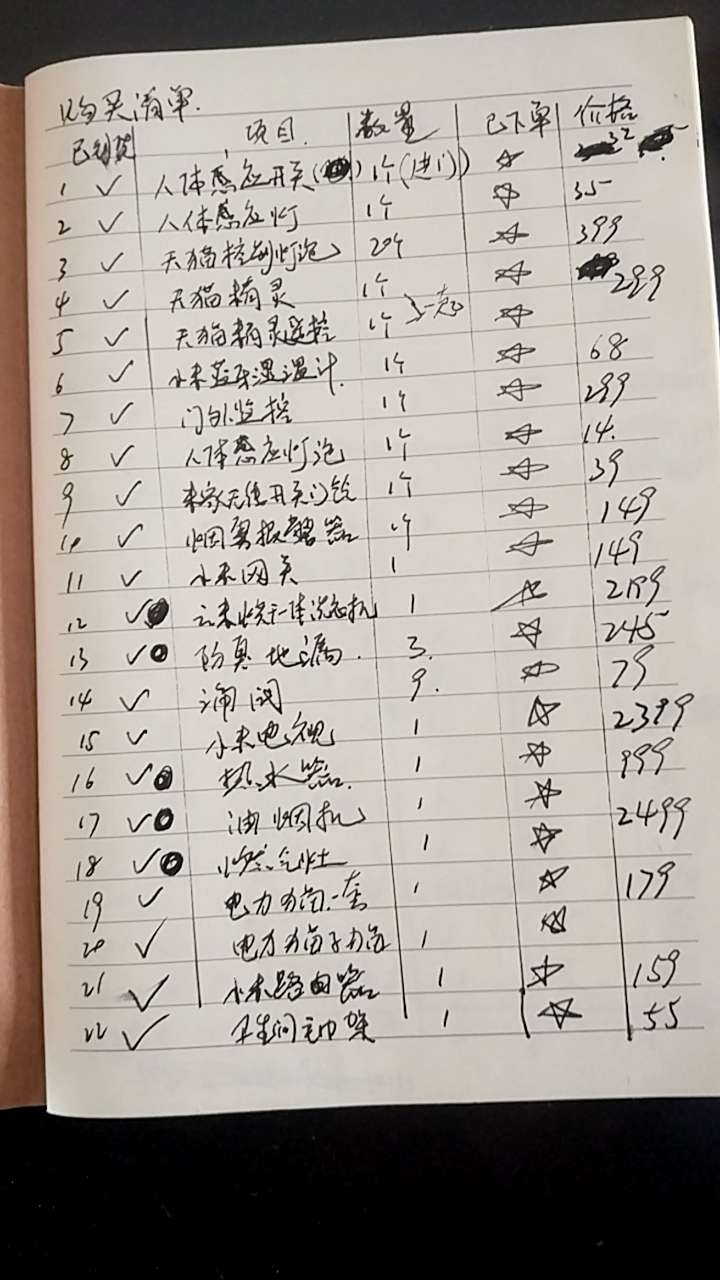 购买清单.
已到货 项目 数量 已下单 价格
1 ✓ 人体感应开关( ) 1个(进门) ☆ 32
2 ✓ 人体感应灯 1个 ☆ 35
3 ✓ 天猫控制灯泡 2个 ☆ 399
4 ✓ 天猫精灵 1个 ☆ 299
5 ✓ 天猫精灵遥控 1个 一起 ☆
6 ✓ 小米蓝牙湿温计. 1个 ☆ 68
7 ✓ 门外监控 1个 ☆ 299
8 ✓ 人体感应灯泡 1个 ☆ 14.
9 ✓ 米家无线开关门铃 1个 ☆ 39
10 ✓ 烟雾报警器 1个 ☆ 149
11 ✓ 小米网关 1 ☆ 149
12 ✓ 云米烘干一体洗衣机 1 ☆ 2199
13 ✓ 防臭地漏. 3. ☆ 245
14 ✓ 涌阀 9. ☆ 79
15 ✓ 小米电视 1 ☆ 2399
16 ✓ 热水器. 1 ☆ 999
17 ✓ 油烟机 1 ☆ 2499
18 ✓ 燃气灶 1 ☆
19 ✓ 电力猫一套 1 ☆ 179
20 ✓ 电力猫子猫 1 ☆
21 ✓ 小米路由器 1 ☆ 159
22 ✓ 卫生间毛巾架 1 ☆ 55